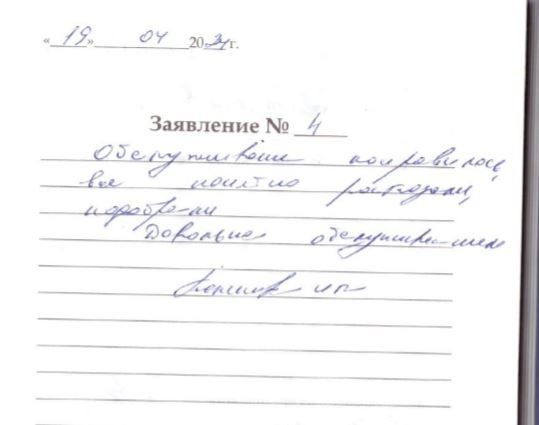 «19» 04 2024г.
Заявление № 4
Обслуживание понравилось,
все понятно рассказали,
подобрали
Довольна обслуживанием